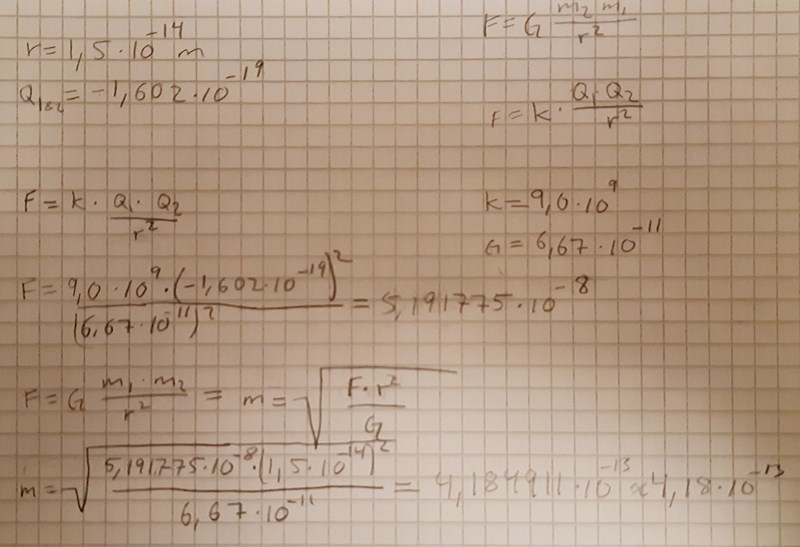 F = G m₂ m₁ / r²
r = 1,5 · 10⁻¹⁴ m
Q₁&₂ = -1,602 · 10⁻¹⁹
F = k · Q₁ Q₂ / r²
F = k · Q₁ · Q₂ / r²
k = 9,0 · 10⁹
G = 6,67 · 10⁻¹¹
F = 9,0 · 10⁹ · (-1,602 · 10⁻¹⁹)² / (6,67 · 10⁻¹¹)² = 5,191775 · 10⁻⁸
F = G m₁ · m₂ / r² = m = √(F · r² / G)
m = √(5,191775 · 10⁻⁸ · (1,5 · 10⁻¹⁴)² / 6,67 · 10⁻¹¹) = 4,184911 · 10⁻¹³ ≈ 4,18 · 10⁻¹³